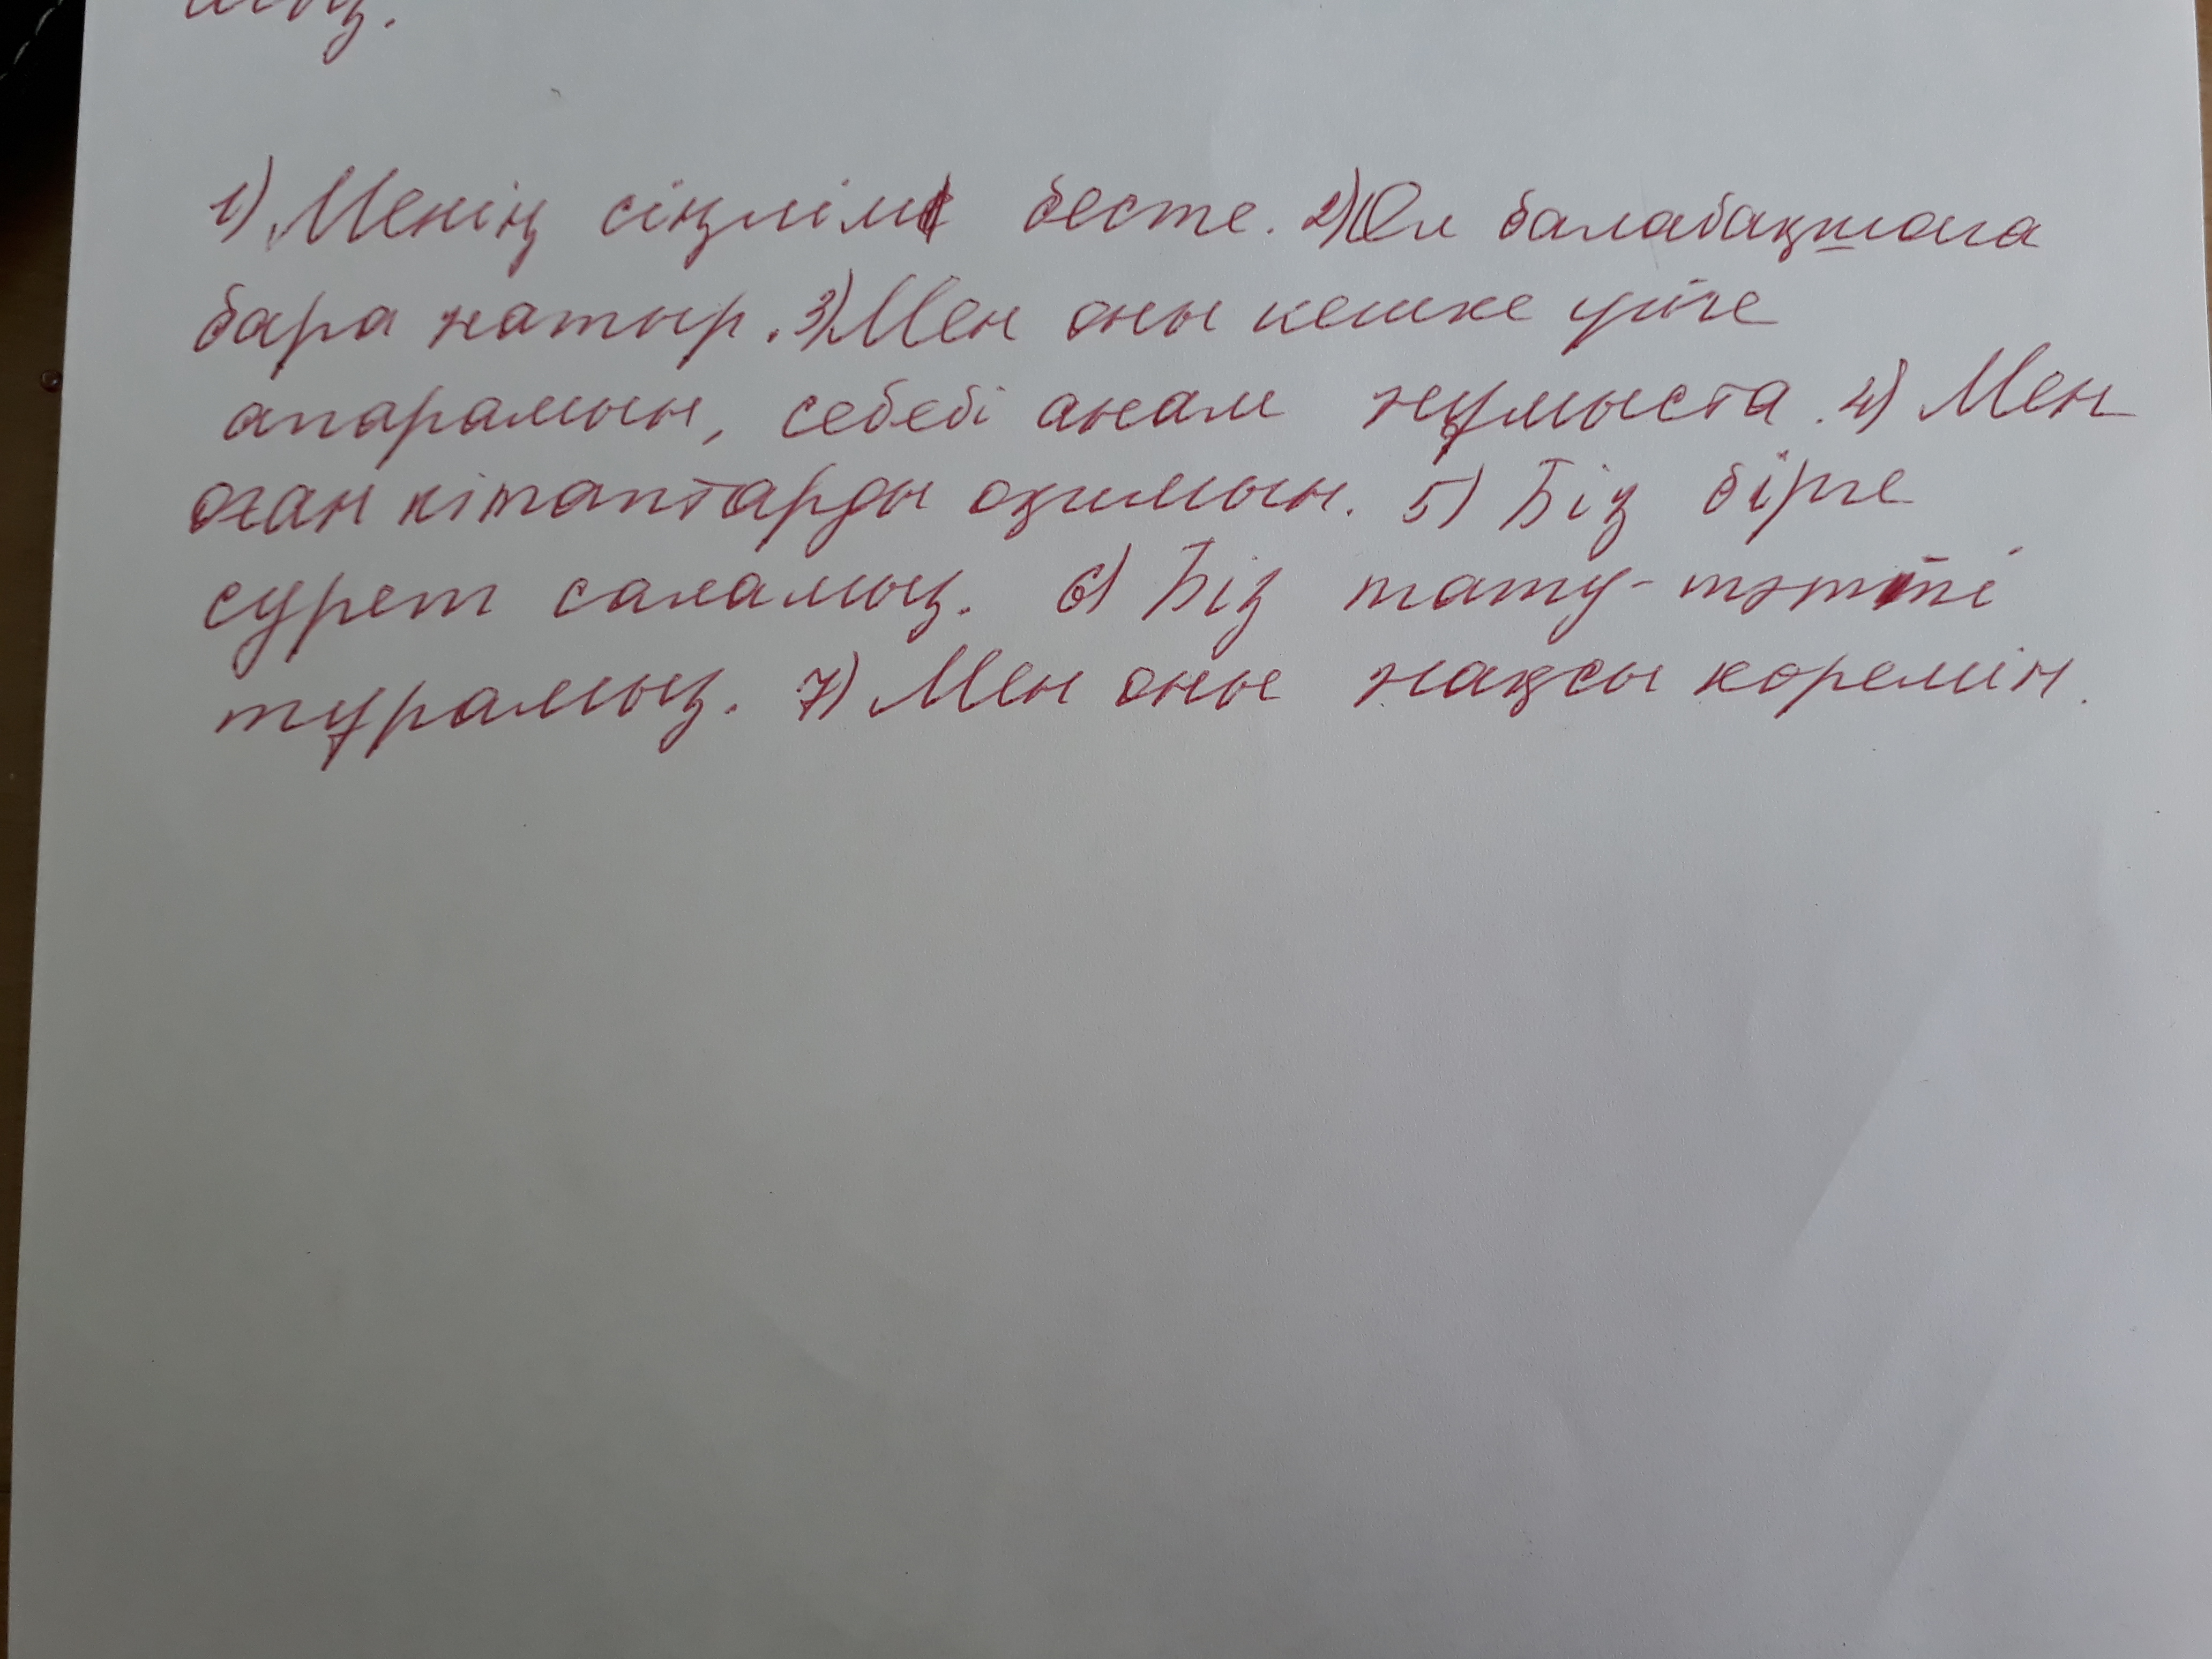 мыз.
1) Менің сіңлім бесте. 2) Ол балабақшаға
бара жатыр. 3) Мен оны кешке үйге
апарамын, себебі анам жұмыста. 4) Мен
оған кітаптарды оқимын. 5) Біз бірге
сурет саламыз. 6) Біз тату-тәтті
тұрамыз. 7) Мен оны жақсы көремін.